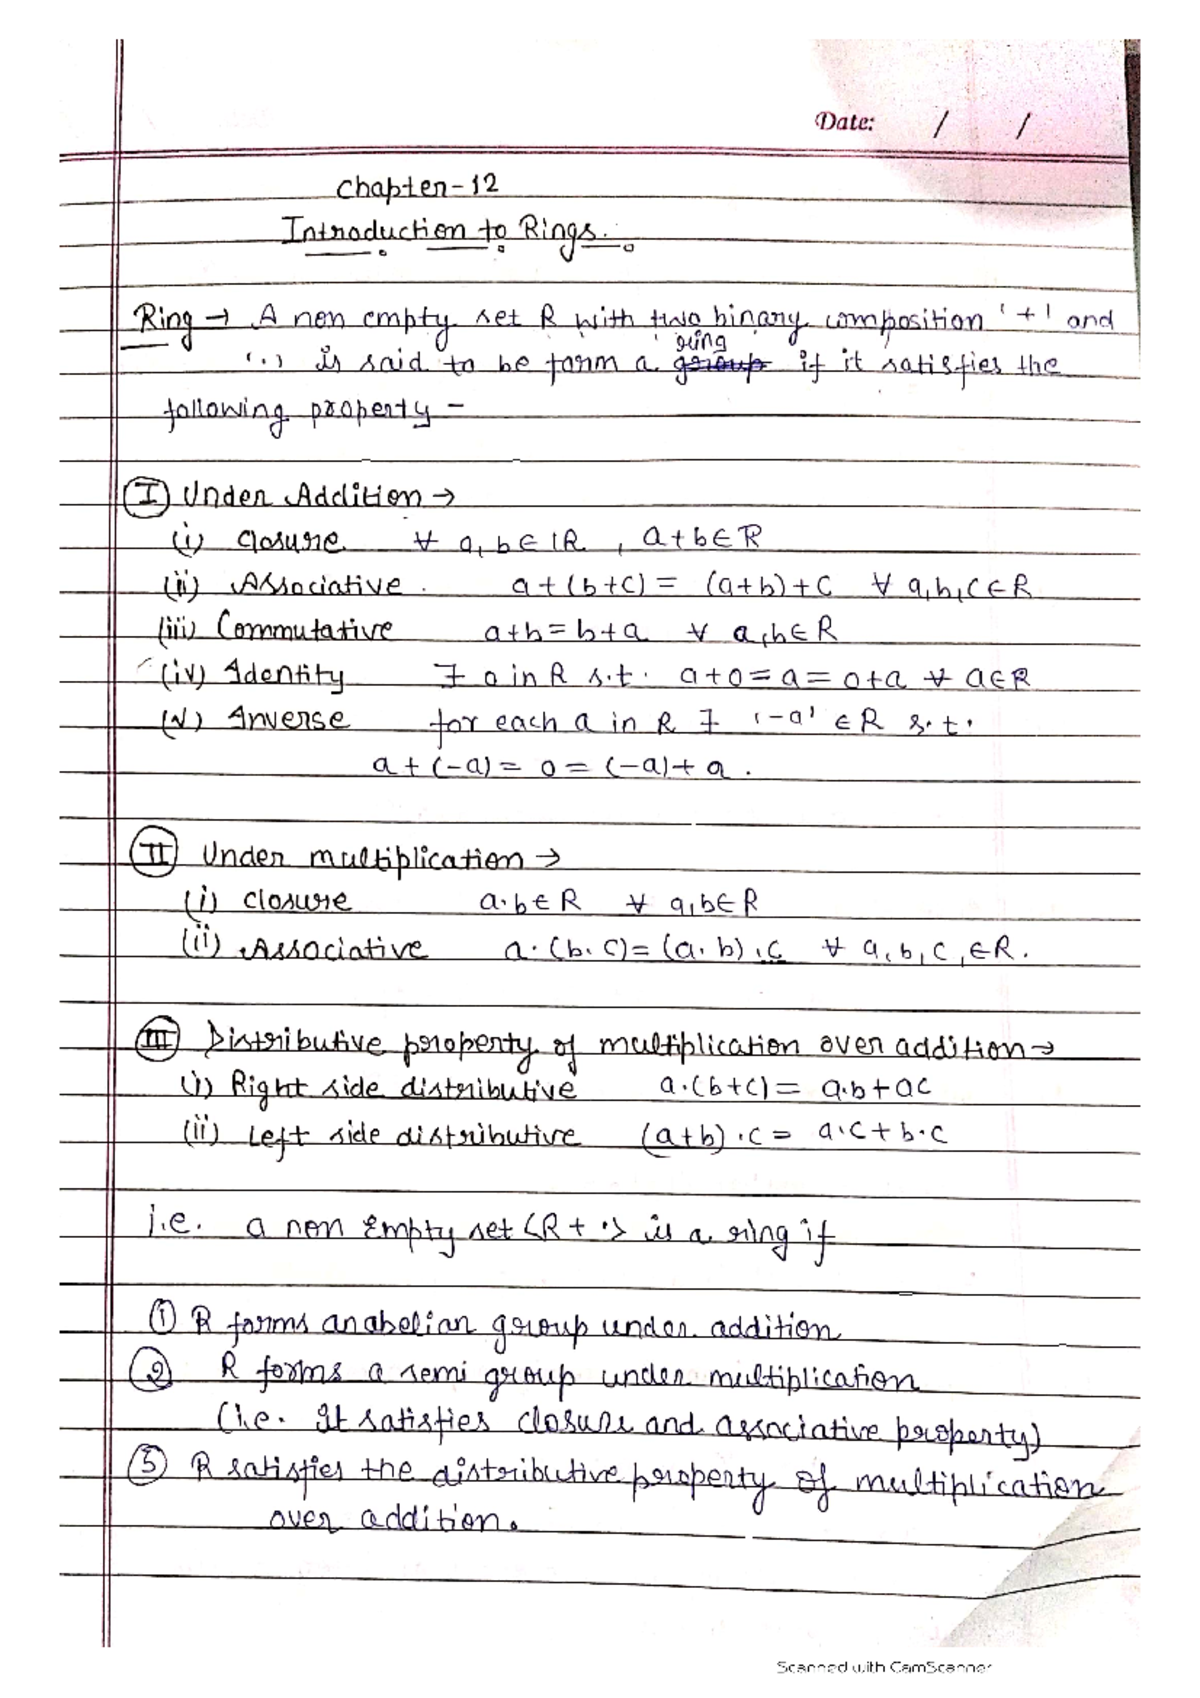 Date: / /
Chapter-12
Introduction to Rings.
Ring → A non empty set R with two binary composition '+' and
'.' is said to be form a ~~group~~ ring if it satisfies the
following property -
(I) Under Addition →
(i) Closure ∀ a,b ∈ IR , a+b ∈ R
(ii) Associative . a+(b+c) = (a+b)+c ∀ a,b,c ∈ R
(iii) Commutative a+b = b+a ∀ a,b ∈ R
(iv) Identity ∃ 0 in R s.t. a+0 = a = 0+a ∀ a ∈ R
(v) Inverse for each a in R ∃ '-a' ∈ R s.t.
a + (-a) = 0 = (-a) + a .
(II) Under multiplication →
(i) closure a.b ∈ R ∀ a,b ∈ R
(ii) Associative a.(b.c) = (a.b).c ∀ a,b,c, ∈ R.
(III) Distributive property of multiplication over addition →
(i) Right side distributive a.(b+c) = a.b + ac
(ii) Left side distributive (a+b).c = a.c + b.c
i.e. a non Empty set <R + .> is a ring if
① R forms an abelian group under addition
② R forms a semi group under multiplication
(i.e. It satisfies closure and associative property)
③ R satisfies the distributive property of multiplication
over addition.
Scanned with CamScanner